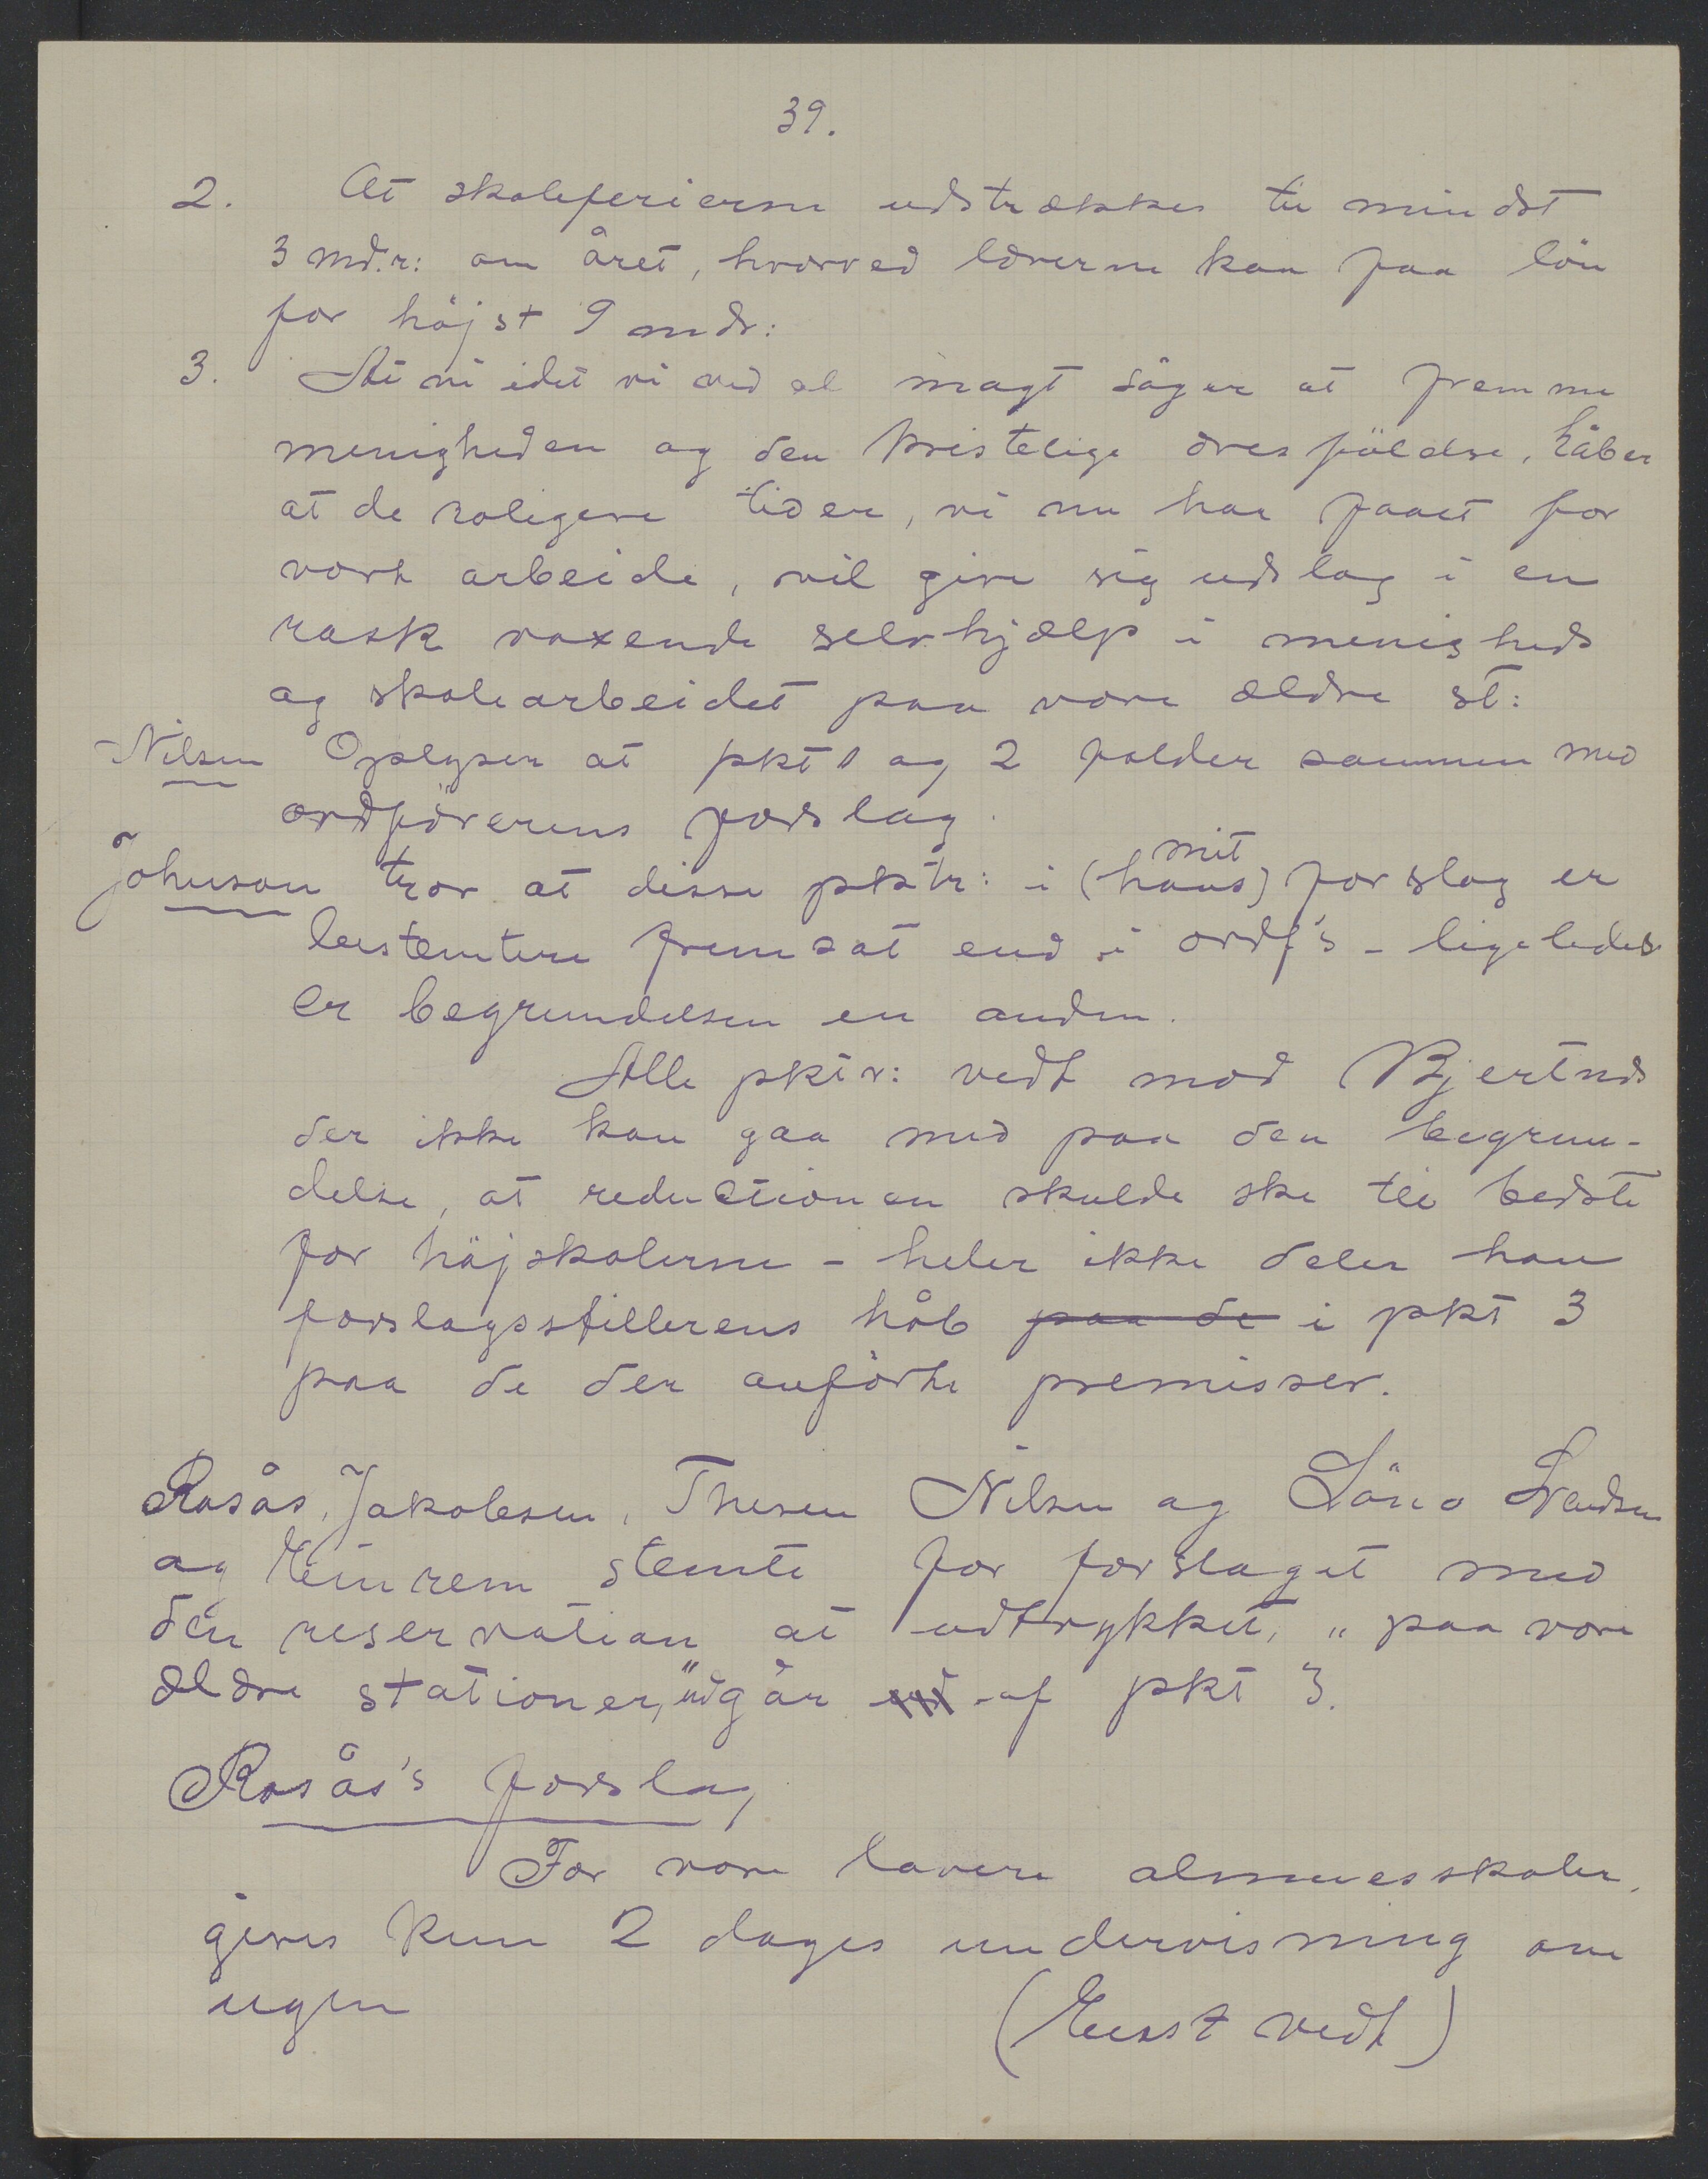 39.
2. At skoleferierne udstrækkes til mindst
3 md.r: om året, hvorved lærerne kan faa lön
for höjst 9 mdr:
3. At vi idet vi ved al magt söger at fremme
menigheden og den kristelige oves földse, håber
at de roligere tider, vi nu har faaet for
vort arbeide, vil give sig udslag i en
rask voxende selvhjælp i menigheds
og skolearbeidet paa vore ældre st:
Nilsen Oplyser at pkt 1 og 2 falder sammen med
ordförerens forslag.
Johnson tror at disse pktr: i (hans) mit forslag er
bestemtere fremsat end i ordf's - ligeledes
er begrundelsen en anden.
Alle pktr: vedt mod Bjertnæs
der ikke kan gaa med paa den begrun-
delse, at reductionen skulde ske til bedste
for höjskolerne - heler ikke deler han
forslagsstillerens håb paa de i pkt 3
paa de der anförte premisser.
Rosås, Jakobsen, Thesen Nilsen og Löno Svendsen
og Einrem stemte for forslaget med
den reservation at udtrykket, „paa vore
ældre stationer," udgår af pkt 3.
Rosås's forslag
For vore lavere almuesskoler,
gives kun 2 dages undervisning om
ugen
(Eenst vedt)